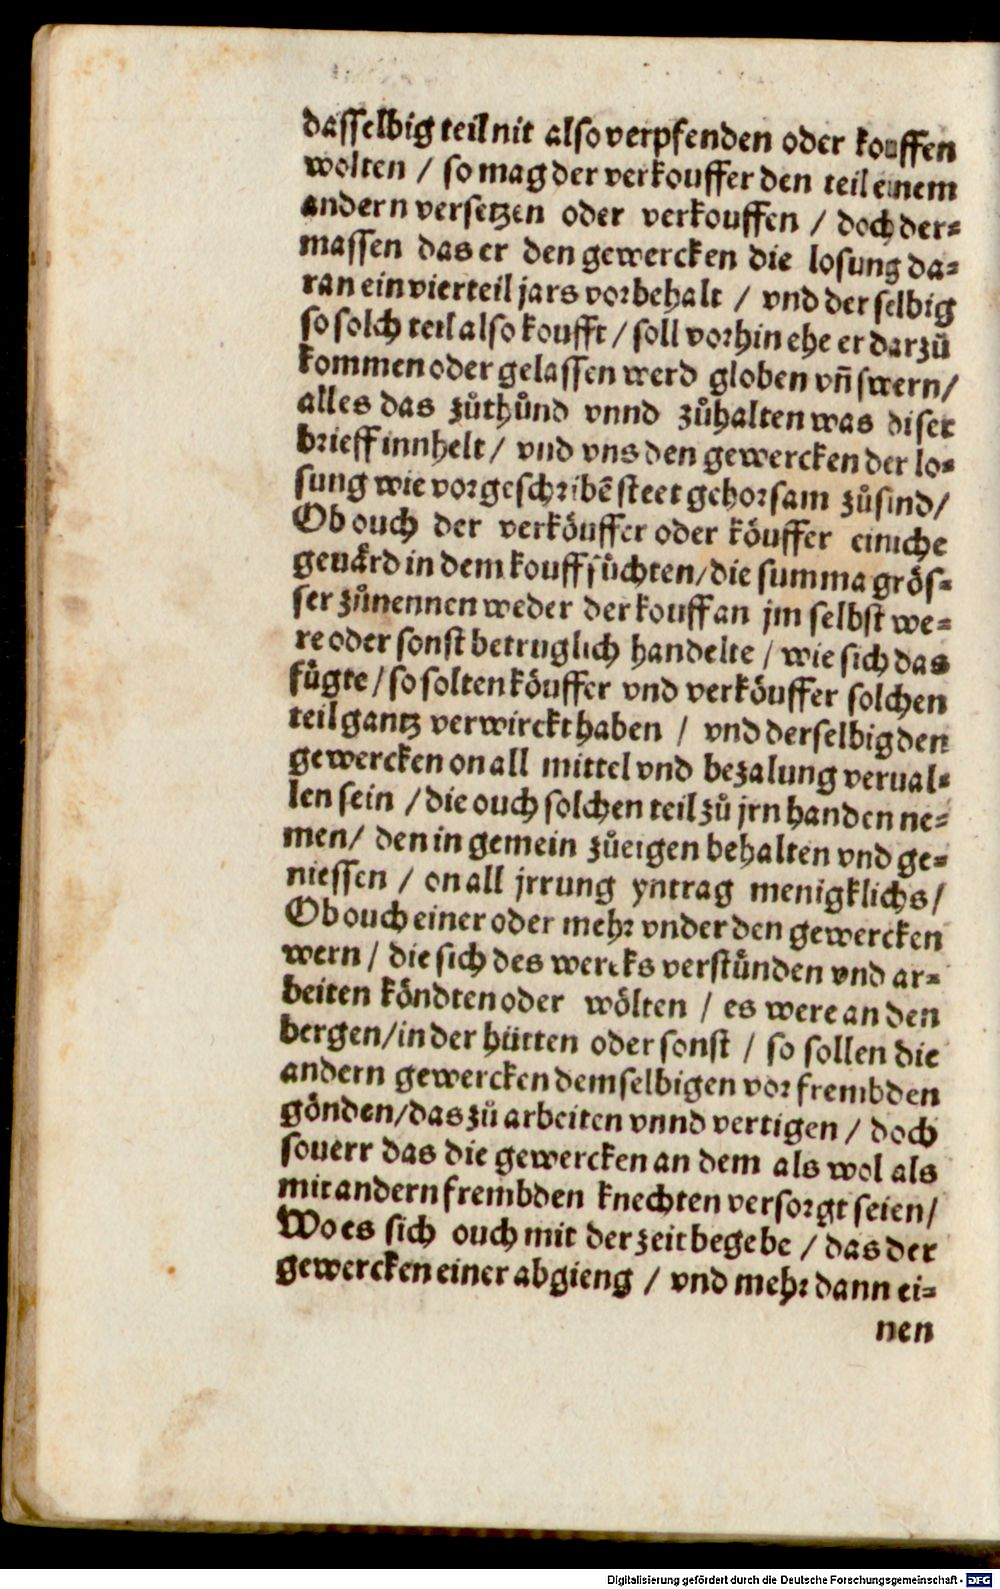 dasselbig teil nit also verpfenden oder kouffen
wolten / so mag der verkouffer den teil einem
andern versetzen oder verkouffen / doch der⸗
massen das er den gewercken die losung da⸗
ran ein vierteil jars vorbehalt / vnd der selbig
so solch teil also koufft / soll vorhin ehe er darzuͦ
kommen oder gelassen werd globen vn̄ swern/
alles das zuͦthuͦnd vnnd zuͦhalten was diser
brieff innhelt / vnd vns den gewercken der lo⸗
sung wie vorgeschribē steet gehorsam zuͦsind/
Ob ouch der verkoͤuffer oder koͤuffer einiche
geuaͤrd in dem kouff suͤchten/die summa groͤs⸗
ser zuͦnennen weder der kouff an jm selbst we⸗
re oder sonst betruglich handelte / wie sich das
fuͤgte / so solten koͤuffer vnd verkoͤuffer solchen
teil gantz verwirckt haben / vnd derselbig den
gewercken on all mittel vnd bezalung verual⸗
len sein / die ouch solchen teil zuͦ jrn handen ne⸗
men/ den in gemein zuͦeigen behalten vnd ge⸗
niessen / on all jrrung yntrag menigklichs /
Ob ouch einer oder mehr vnder den gewercken
wern / die sich des wercks verstuͤnden vnd ar⸗
beiten koͤndten oder woͤlten / es were an den
bergen/in der huͤtten oder sonst / so sollen die
andern gewercken demselbigen vor frembden
goͤnden/das zuͦ arbeiten vnnd vertigen / doch
souerr das die gewercken an dem als wol als
mit andern frembden knechten versorgt seien /
Wo es sich ouch mit der zeit begebe / das der
gewercken einer abgieng / vnd mehr dann ei⸗
nen
Digitalisierung gefördert durch die Deutsche Forschungsgemeinschaft - DFG